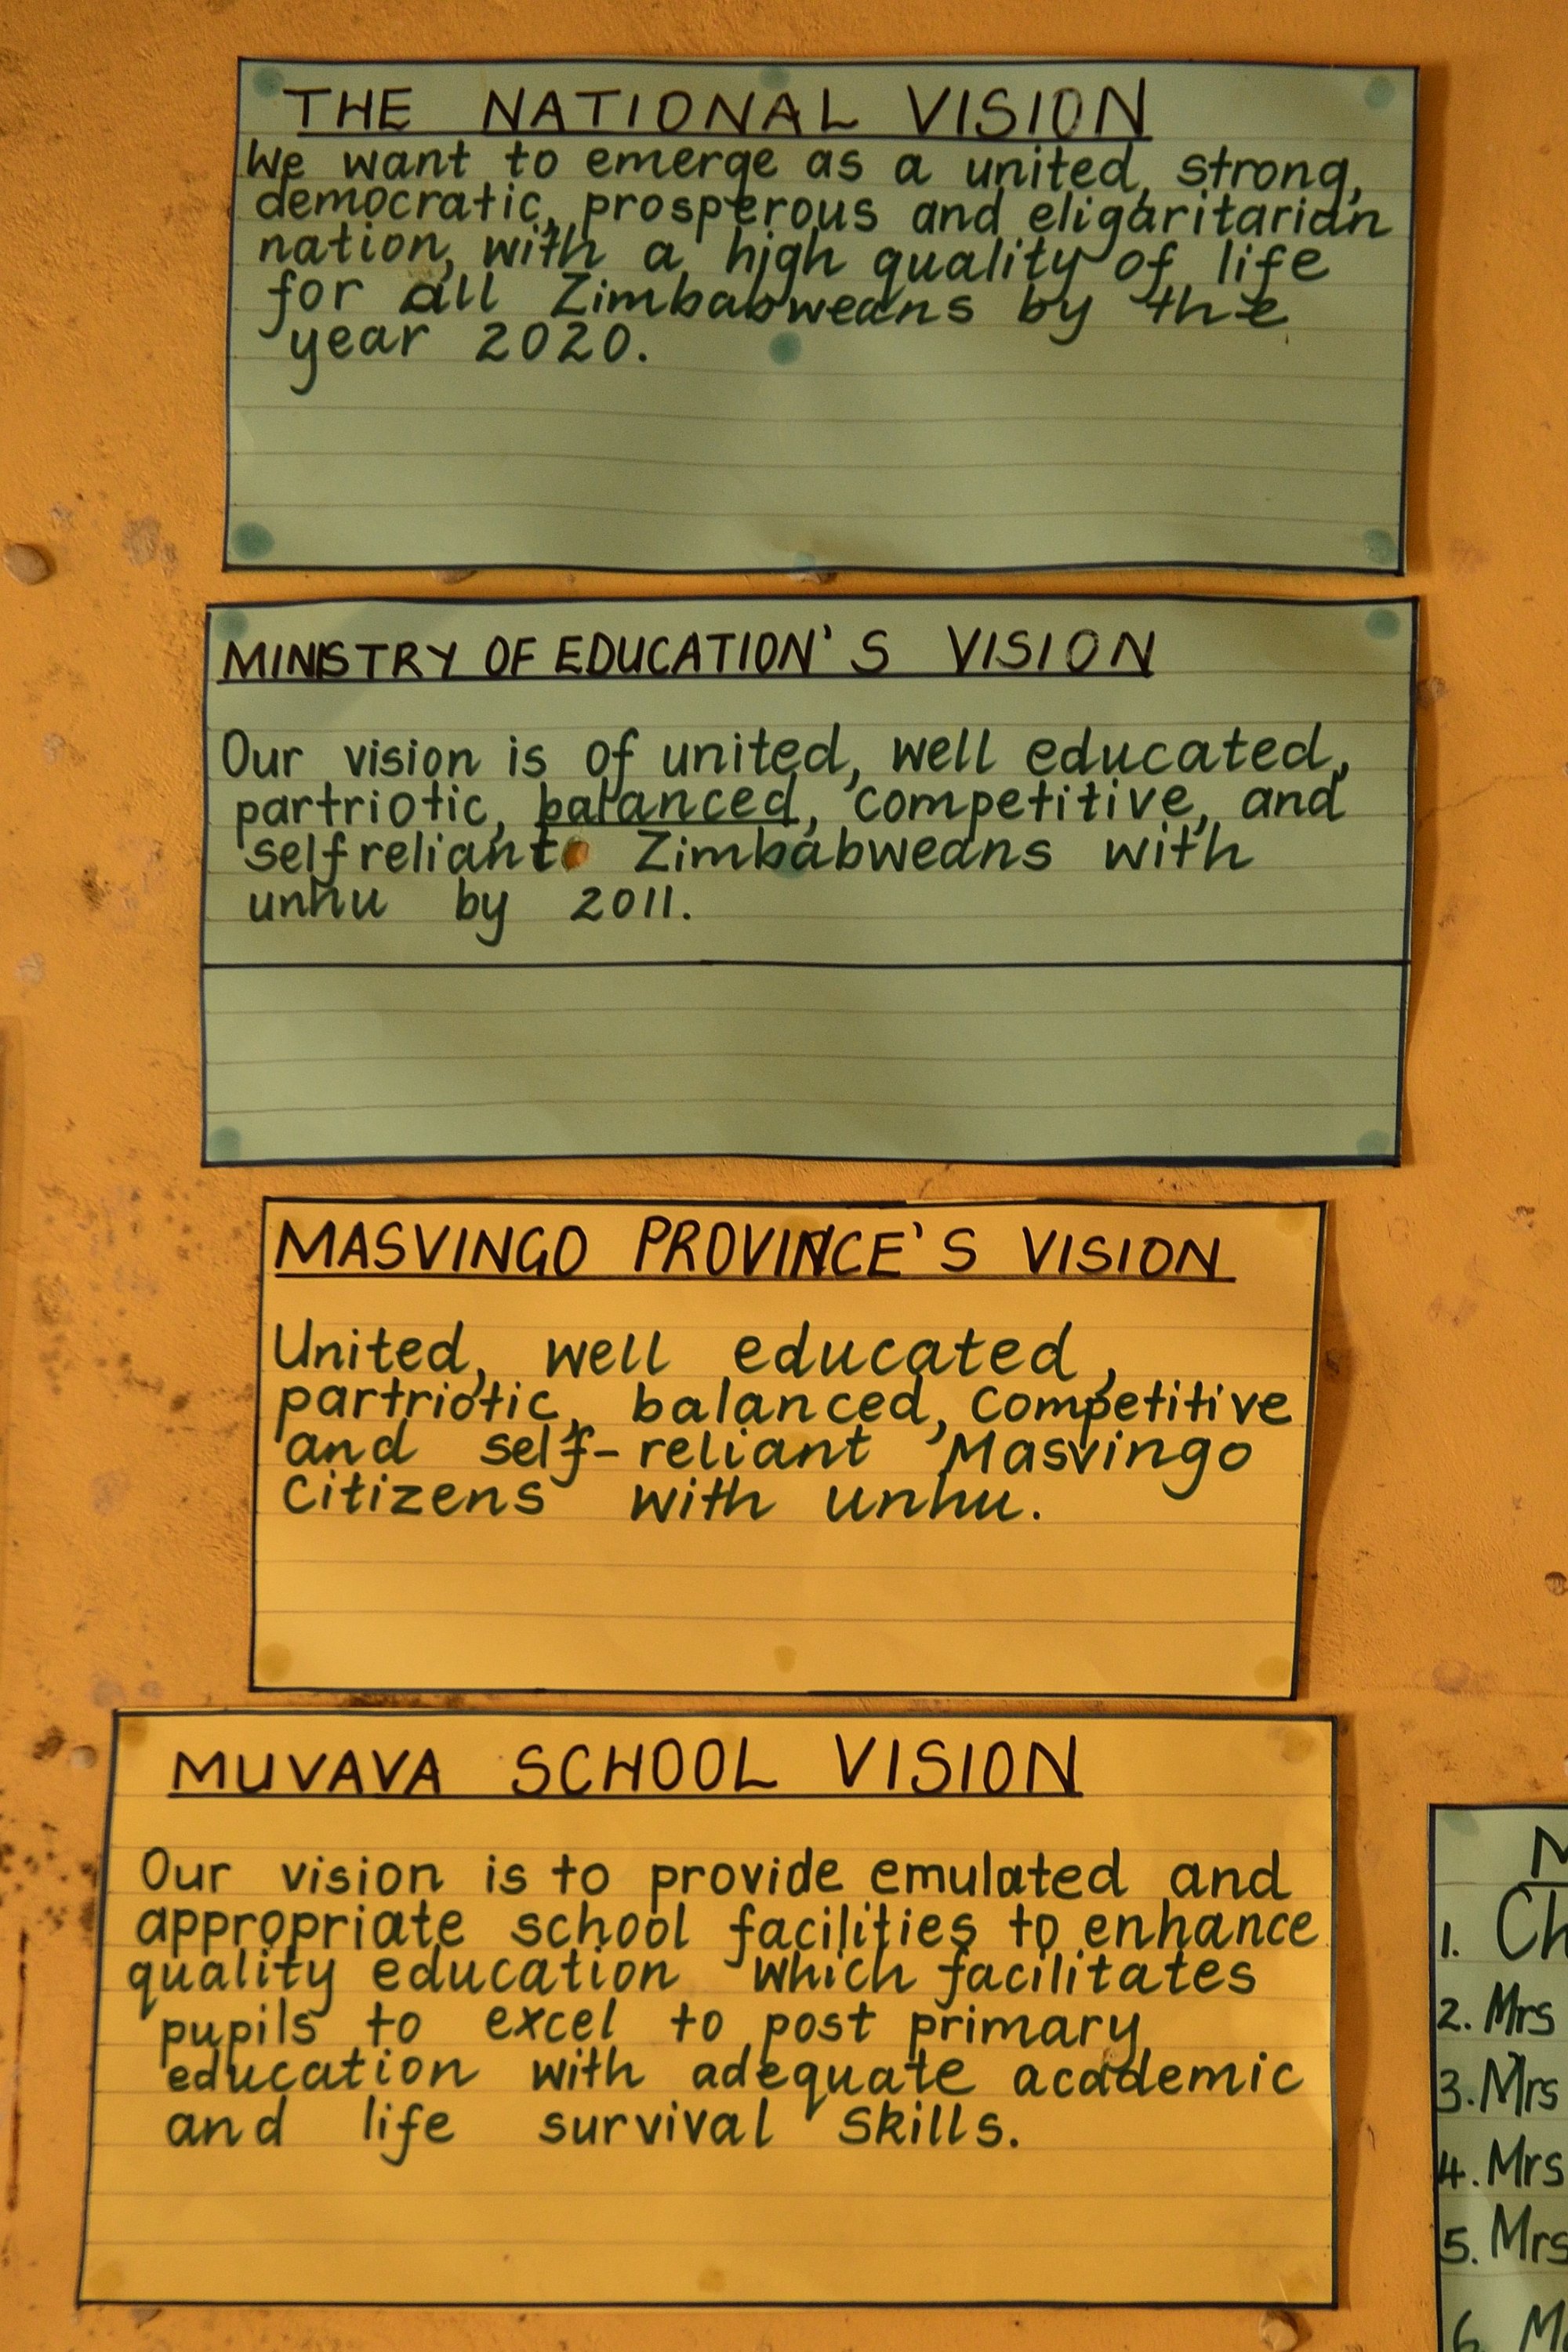 THE NATIONAL VISION
We want to emerge as a united, strong,
democratic, prosperous and eligaritarian
nation, with a high quality of life
for all Zimbabweans by the
year 2020.
MINISTRY OF EDUCATION'S VISION
Our vision is of united, well educated,
partriotic, balanced, competitive, and
selfreliant Zimbabweans with
unhu by 2011.
MASVINGO PROVINCE'S VISION
United, well educated,
partriotic, balanced, Competitive
and self-reliant Masvingo
Citizens with unhu.
MUVAVA SCHOOL VISION
Our vision is to provide emulated and
appropriate school facilities to enhance
quality education which facilitates
pupils to excel to post primary
education with adequate academic
and life survival Skills.
1. Ch
2. Mrs
3. Mrs
4. Mrs
5. Mrs
6